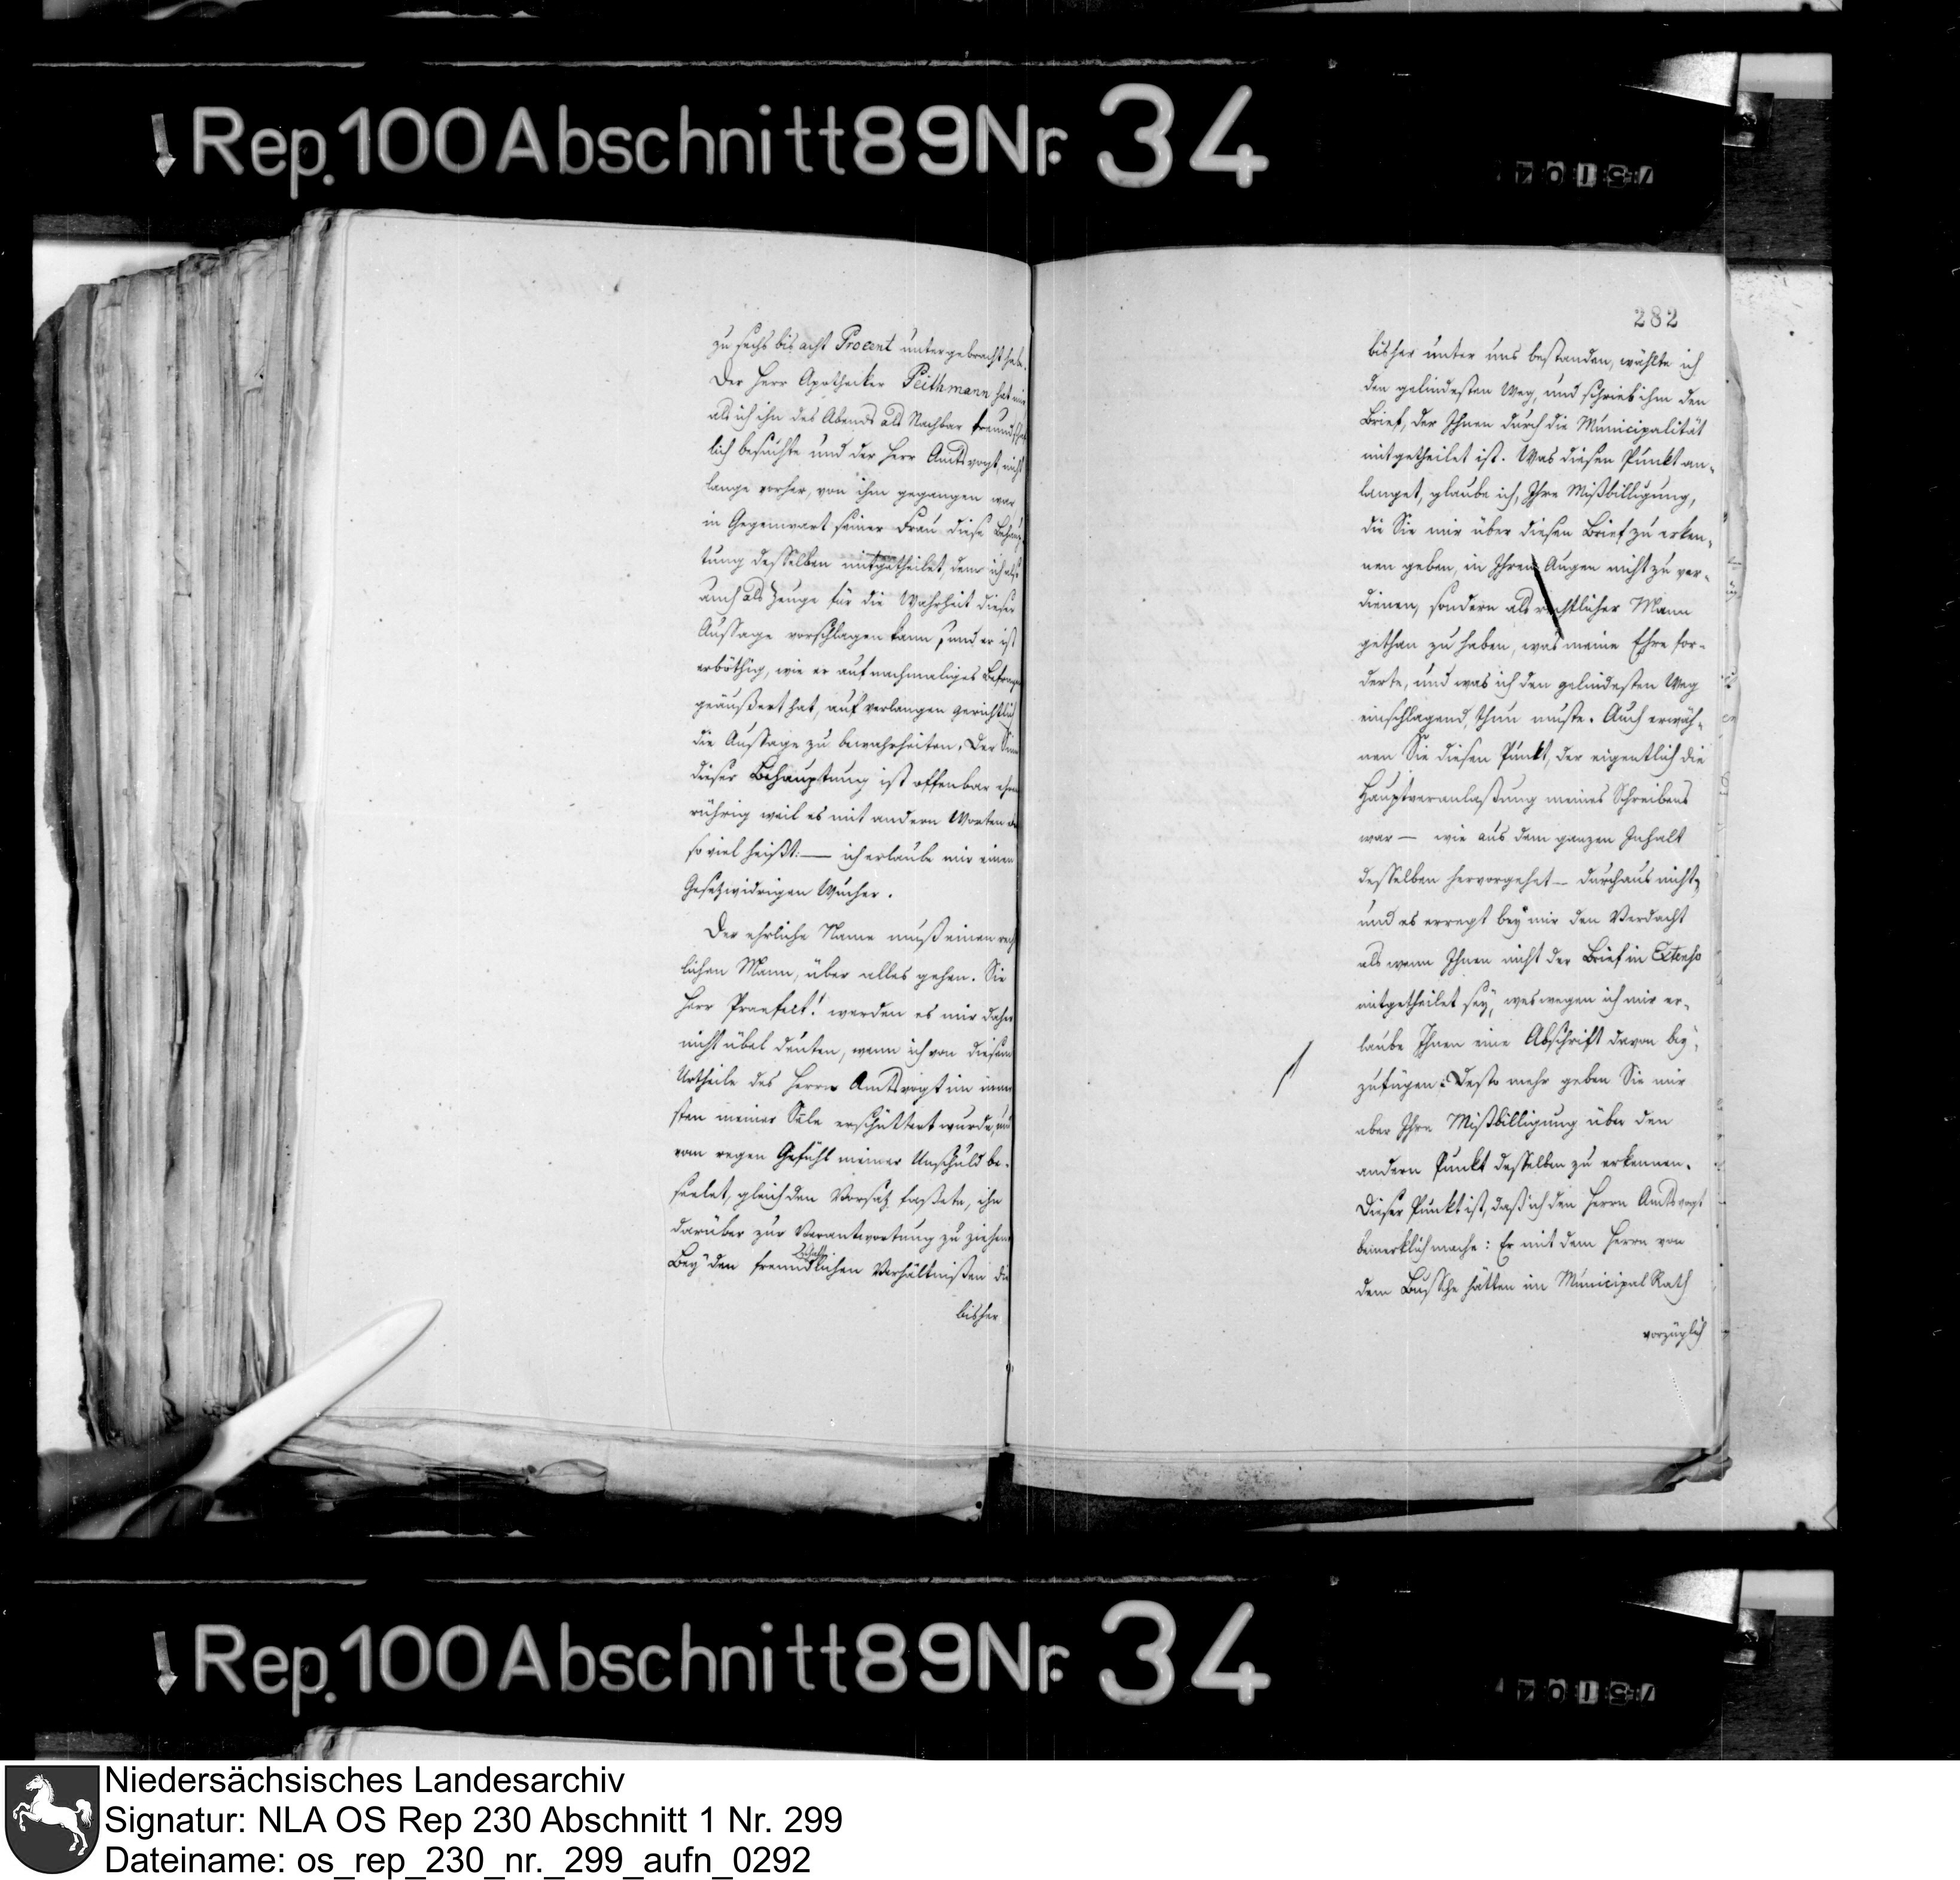 Rep. 100 Abschnitt 89 Nr. 34
zu sechs bis acht Procent untergebracht habe.
Der Herr Apotheker Peithmann hat mir
als ich ihn des Abends als Nachbar freundschaft
lich besuchte und der Herr Amtsvogt nicht
lange vorher, von ihm gegangen war
in Gegenwart seiner Frau diese Behaup
tung desselben mitgetheilet, den ich also
auch als Zeuge für die Wahrheit dieser
Aussage vorschlagen kann, und er ist
erböthig, wie er auf nachmaliges Befragen
geäußert hat, auf verlangen gerichtlich
die Aussage zu bewahrheiten. Der Sinn
dieser Behauptung ist offenbar ehren
rührig weil es mit andern Worten
so viel heißt: — ich erlaube mir einen
Gesetzwidrigen Wucher.
Der ehrliche Name muß einen recht
lichen Mann, über alles gehen. Sie
Herr Praefect! werden es mir daher
nicht übel deuten, wenn ich von diesem
Urtheile des Herrn Amtsvogt im inner
sten meiner Sele erschüttert wurde, und
vom regen Gefühl meiner Unschuld be-
seelet, gleich den Vorsatz faßete, ihn
darüber zur Verantwortung zu ziehen
schaft
Bey den freundlichen Verhältnißen die
bisher
282
bisher unter uns bestanden, wählte ich
den gelindesten Weg, und schrieb ihm den
Brief, der Ihnen durch die Municipalität
mitgetheilet ist. Was diesen Punkt an-
langet, glaube ich, Ihre Mißbilligung,
die Sie mir über diesen Brief zu erken-
nen geben, in Ihren Augen nicht zu ver-
dienen, sondern als rechtlicher Mann
gethan zu haben, was meine Ehre for-
derte, und was ich den gelindesten Weg
einschlagend, thun mußte. Auch erwäh-
nen Sie diesen Punkt, der eigentlich die
Hauptveranlaßung meines Schreibens
war — wie aus dem ganzen Inhalt
desselben hervorgehet — durchaus nicht,
und es erregt bey mir den Verdacht
als wenn Ihnen nicht der Brief in Extenso
mitgetheilet sey, weswegen ich mir er-
laube Ihnen eine Abschrift davon bey-
zufügen. Desto mehr geben Sie mir
aber Ihre Mißbilligung über den
andern Punkt desselben zu erkennen.
Dieser Punkt ist, daß ich den Herrn Amtsvogt
bemerklich mache: Er mit dem Herrn von
dem Bussche hätten im Municipal Rath
vorzüglich
Rep. 100 Abschnitt 89 Nr. 34
Niedersächsisches Landesarchiv
Signatur: NLA OS Rep 230 Abschnitt 1 Nr. 299
Dateiname: os_rep_230_nr._299_aufn_0292